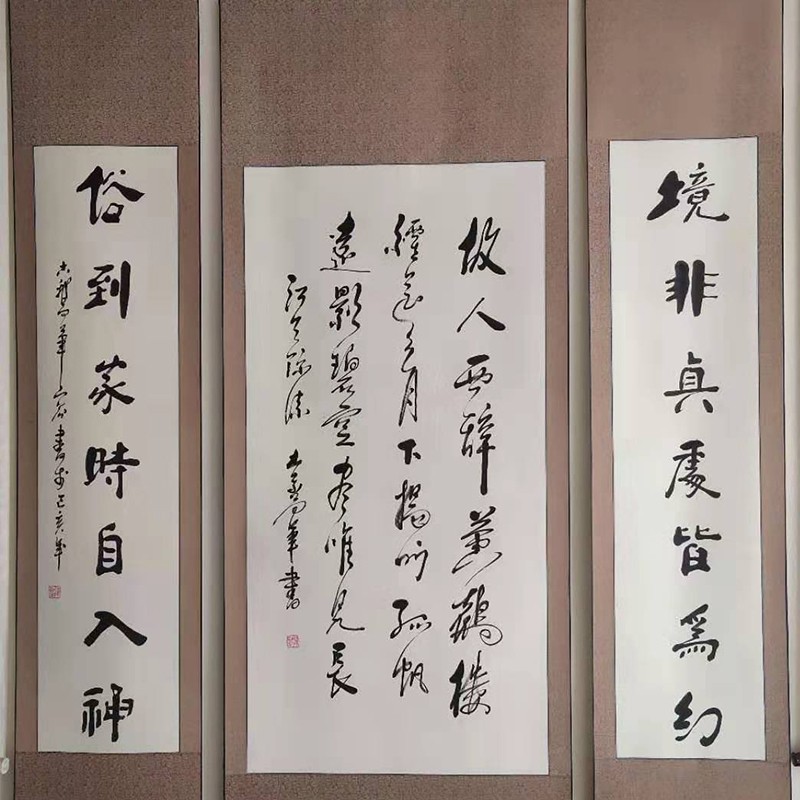 境非真處皆為幻
故人西辭黄鶴樓
煙花三月下揚州孤帆
遠影碧空盡唯見長
江天際流
書
俗到家時自入神
書於己亥年